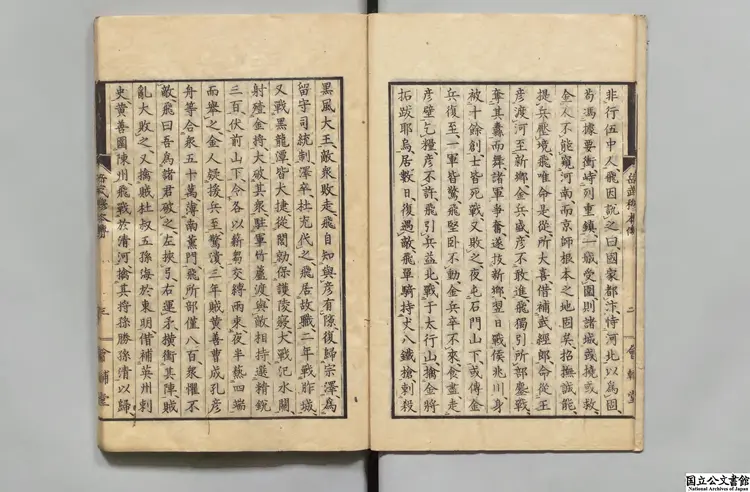 非行伍中人、飛因說之曰、國家都汴、恃河北以爲固、
苟馮據要衝、峙列重鎮、一城受圍、則諸城或撓或救、
金人不能窺河南、而京師根本之地固矣、招撫誠能
提兵壓境、飛唯命是從、所大喜、借補武經郎、命從王
彥渡河、至新鄉、金兵盛、彥不敢進、飛獨引所部鏖戰、
奪其纛而舞、諸軍爭奮、遂拔新鄉、翌日戰侯兆川、身
被十餘創、士皆死戰、又敗之、夜屯石門山下、或傳金
兵復至、一軍皆驚、飛堅卧不動、金兵卒不來、食盡、走
彥壁乞糧、彥不許、飛引兵益北、戰于太行山、擒金將
拓跋耶烏、居數日、復遇敵、飛單騎持丈八鐵槍、刺殺
二
會輔堂
黑風大王、敵衆敗走、飛自知與彥有隙、復歸宗澤、爲
留守司統制、澤卒、杜充代之、飛居故職、二年、戰胙城、
又戰黑龍潭、皆大捷、從閭勍保護陵寢、大戰汜水關、
射殪金將、大破其衆、駐軍竹蘆渡、與敵相持、選精銳
三百、伏前山下、令各以薪芻交縛兩束、夜半爇四端
而舉之、金人疑援兵至、驚潰、三年、賊黃善曹成孔彥
舟等、合衆五十萬、薄南薰門、飛所部僅八百、衆懼不
敵、飛曰、吾爲諸君破之、左挾弓、右運矛、橫衝其陣、賊
亂、大敗之、又擒賊杜叔五孫海於東明、借補英州刺
史、黃善圍陳州、飛戰於清河、擒其將孫勝孫清以歸、
三
會輔堂
国立公文書館
National Archives of Japan